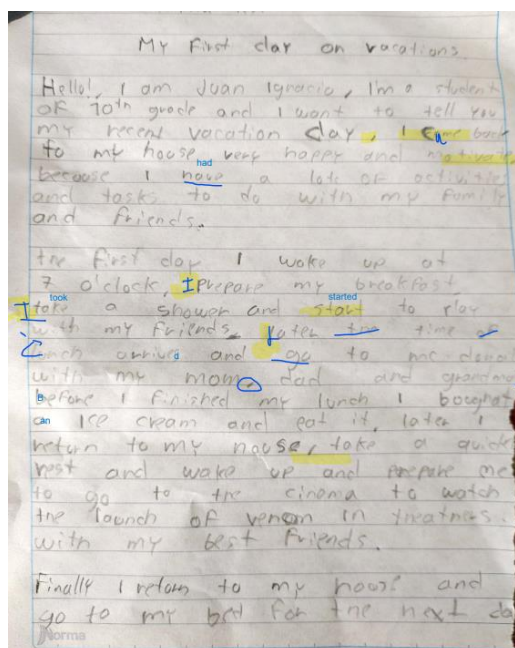 My First day on vacations
Hello!, I am Juan Ignacio, I'm a student
of 10th grade and I want to tell you
my recent vacation day, I came back
to my house very happy and motivate
had
because I have a lots of activities
and tasks to do with my family
and friends.
the first day I woke up at
7 o'clock, I prepare my breakfast
took started
I take a shower and start to play
with my friends. Later the time of
lunch arrived and go to mc donal
with my mom, dad and grandma
Before I finished my lunch I bought
an ice cream and eat it, later I
return to my house, take a quick
rest and wake up and prepare me
to go to the cinema to watch
the launch of venom in
with my best friends.
Finally I return to my house and
go to my bed for the next da
Norma